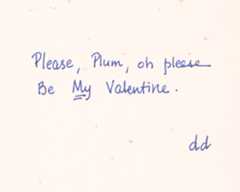 Please, Plum, oh please
Be My Valentine.
dd